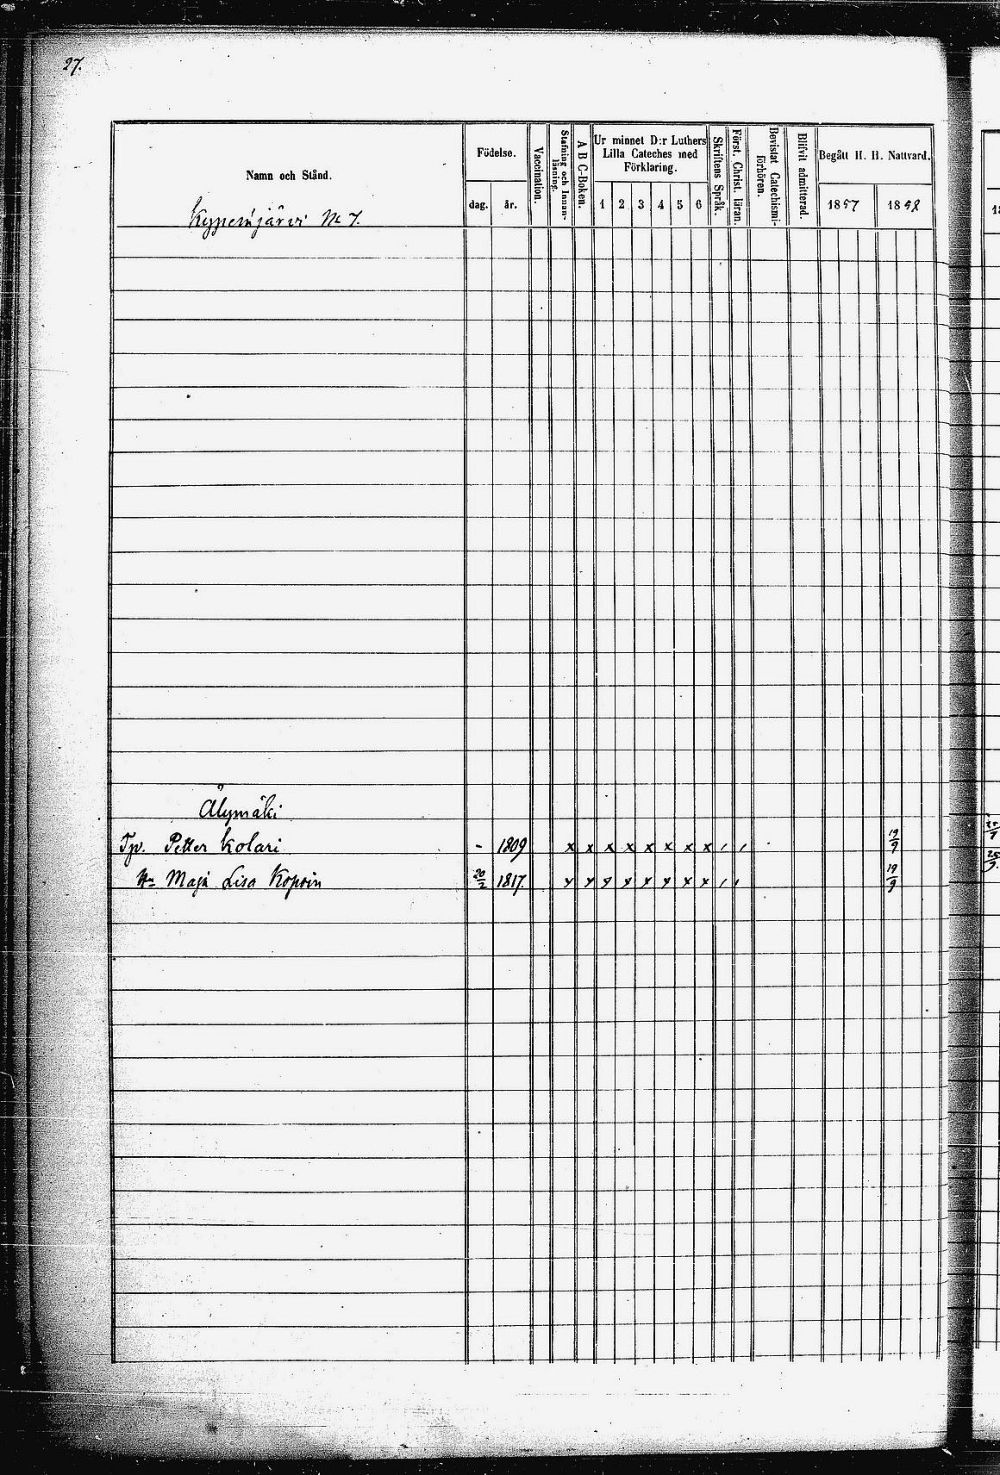 27.
Namn och Stånd.
Födelse.
dag. år.
Vaccination.
Stafning och Innan-
läsning.
A B C-Boken.
Ur minnet D:r Luthers
Lilla Cateches med
Förklaring.
1 2 3 4 5 6
Skriftens Språk.
Först. Christ. läran.
Bevistat Catechismi-
förhören.
Blifvit admitterad.
Begått H. H. Nattvard.
1857 1858
Älymäki
Petter Kolari - 1809 x x x x x x x x , , 19/9
Maja Lisa 20/2 1817 x x x x x x x x , , 19/9